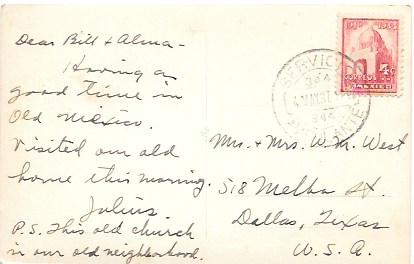 Dear Bill & Alma -
Having a
good time in
Old México.
Visited our old
home this morning.
Julius.
P.S. This old church
in our old neighborhood.
4¢
CORREOS
MEXICO
SERVICIO
Mr. & Mrs. W. M. West
518 Melba St.
Dallas, Texas
U. S. A.